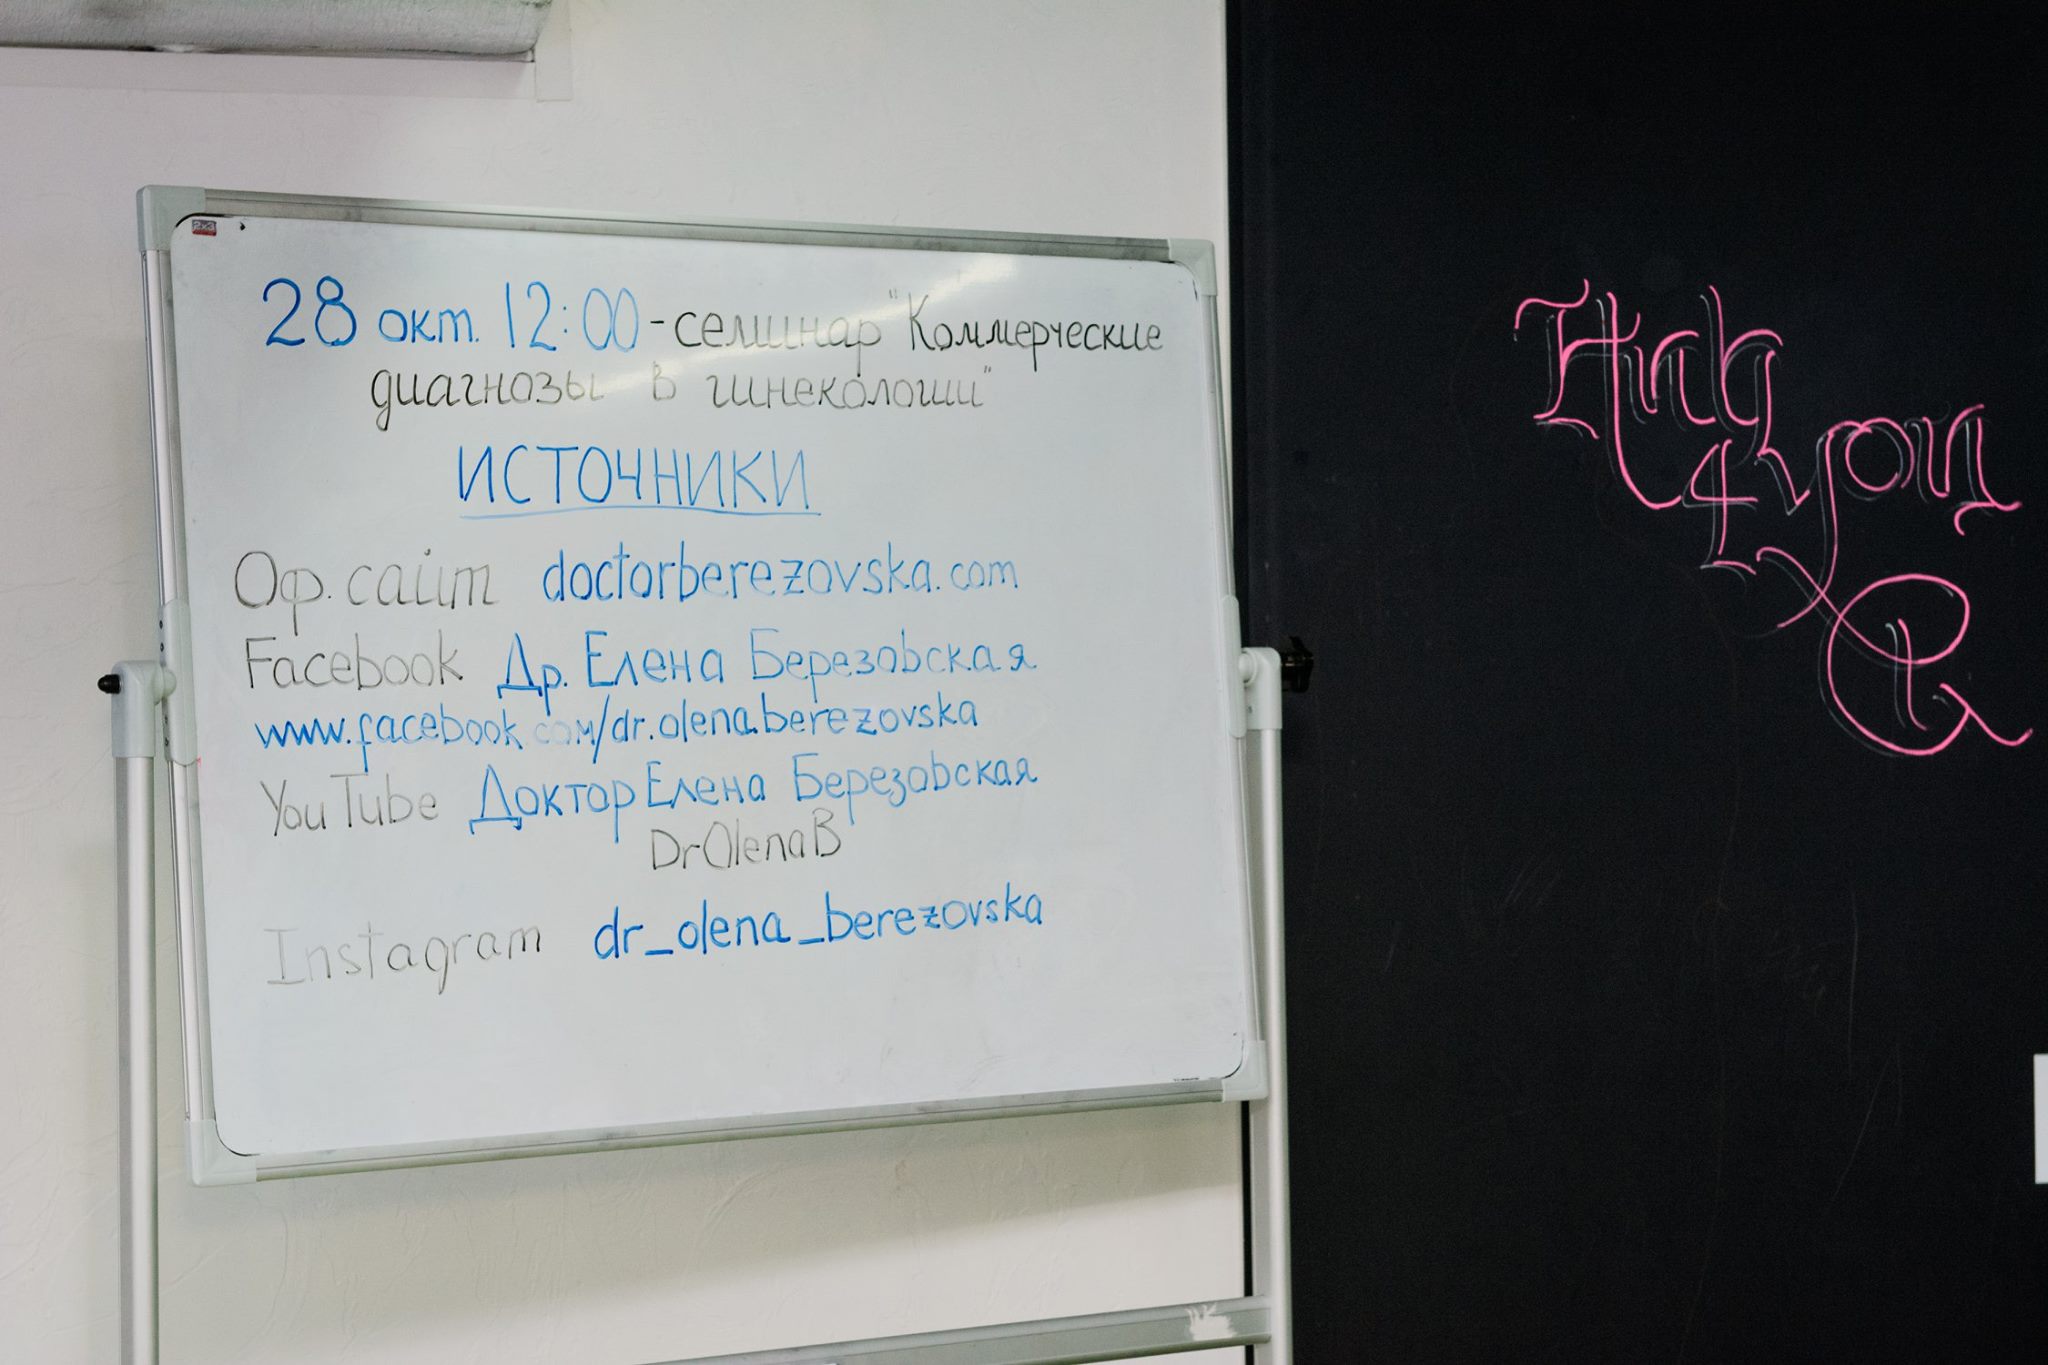 28 окт. 12:00 - семинар "Коммерческие
диагнозы в гинекологии"
ИСТОЧНИКИ
Оф. сайт doctorberezovska.com
Facebook Др. Елена Березовская
www.facebook.com/dr.olena.berezovska
YouTube Доктор Елена Березовская
DrOlenaB
Instagram dr_olena_berezovska
2x3
4 you